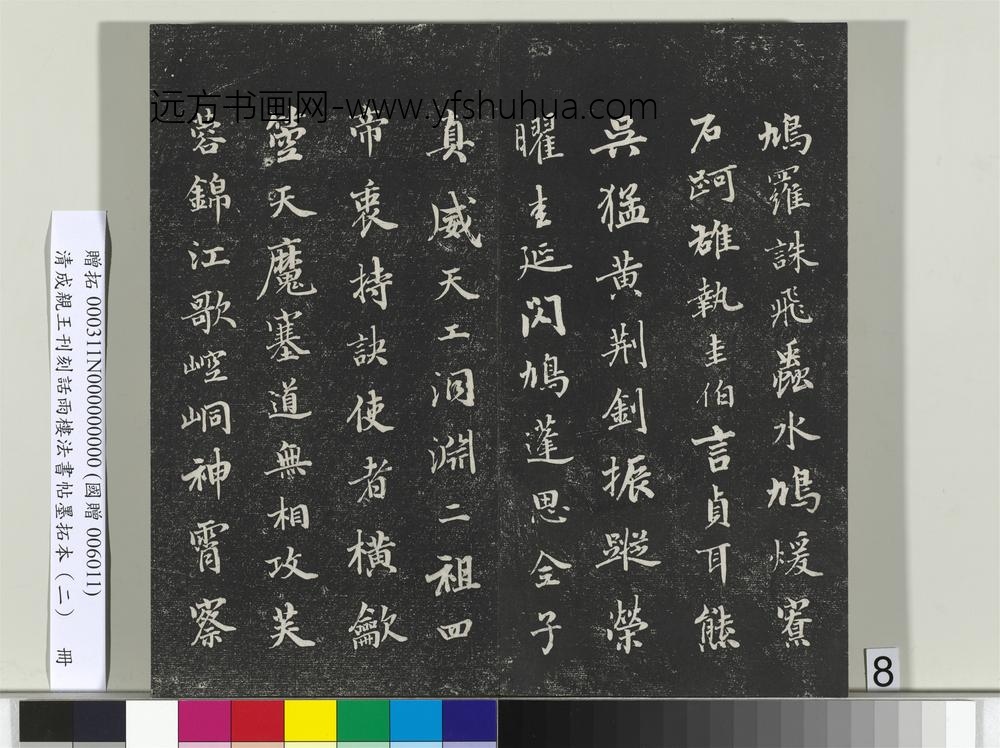 鳩羅誅飛蟲水鳩煖寮
石訶碓執圭伯言貞耳熊
吳猛黄荆釗振蹤榮
曜圭延閃鳩蓬思全子
真威天工洞淵二祖四
帝衷持訣使者横歙
空天魔塞道無相攻芙
蓉錦江歌崆峒神霄察
远方书画网-www.yfshuhua.com
贈拓 000311N000000000 (國贈 006011)
清成親王刊刻話雨樓法書帖墨拓本（二） 冊
8